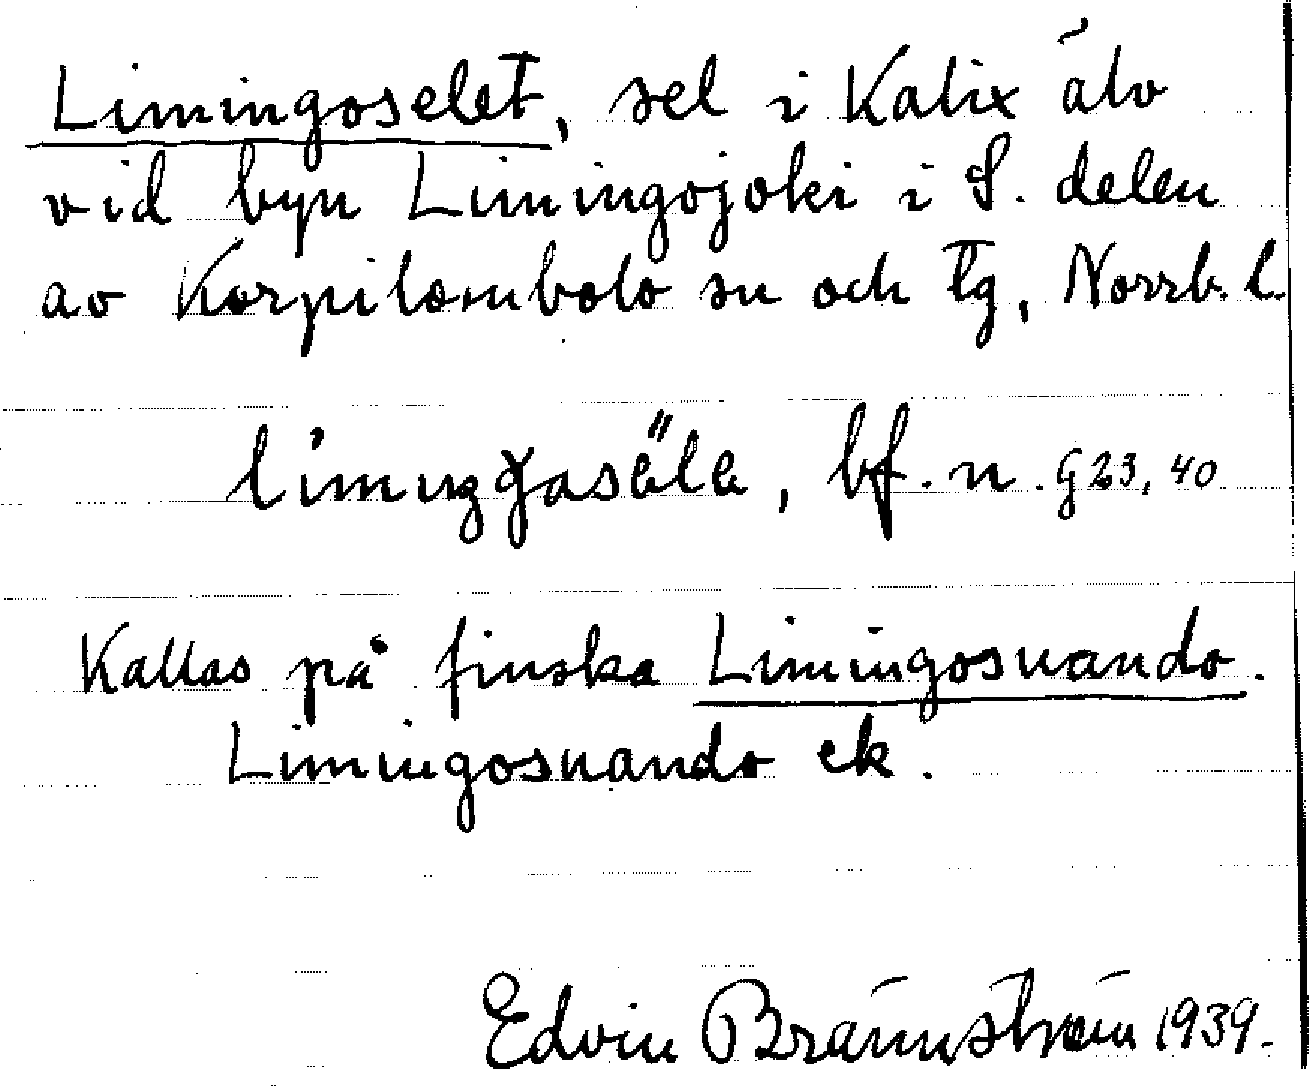 Limingoselet, sel i Kalix älv
vid byn Limingojoki i S. delen
av Korpilombolo sn och tg, Norrb. l.
bf. n. G 23, 40
Kallas på finska Limingosuando.
Limingosuando ek.
Edvin Brännström 1939.